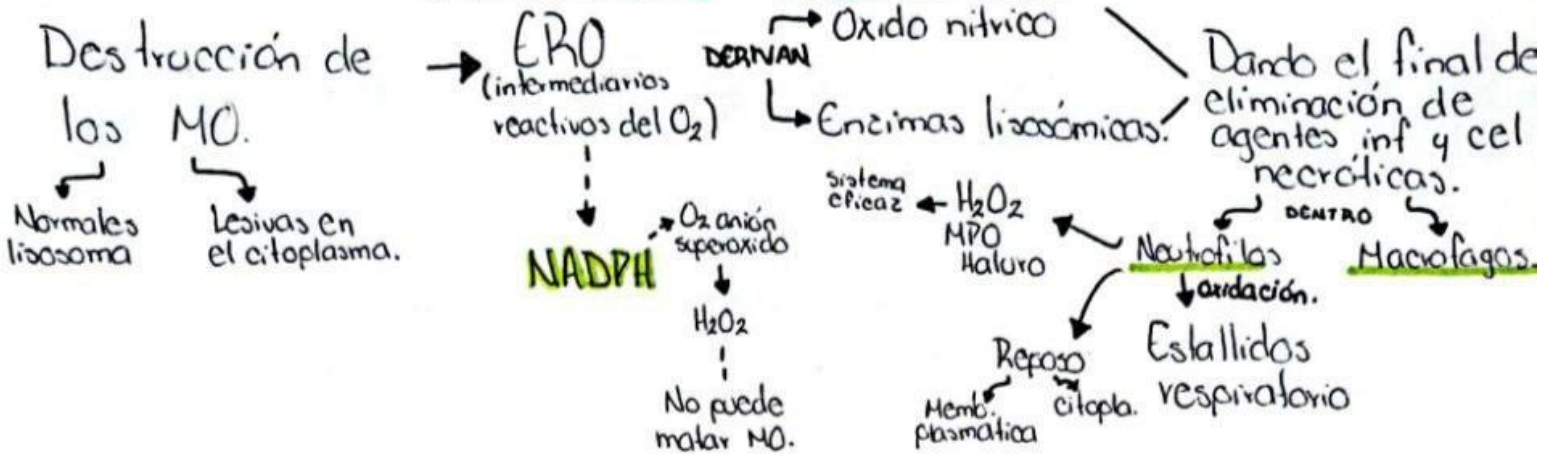 Destrucción de
los MO.
Normales
lisosoma
Lesivas en
el citoplasma.
ERO
(intermediarios
reactivos del O₂)
NADPH
O₂ anión
superoxido
H₂O₂
No puede
matar MO.
DERIVAN
Oxido nitrico
Enzimas lisosómicas.
Dando el final de
eliminación de
agentes inf y cel
necróticas.
DENTRO
Neutrofilos
Macrofagos.
sistema
eficaz
H₂O₂
MPO
Haluro
oxidación.
Estallidos
respiratorio
Reposo
Memb.
plasmatica
citopla.